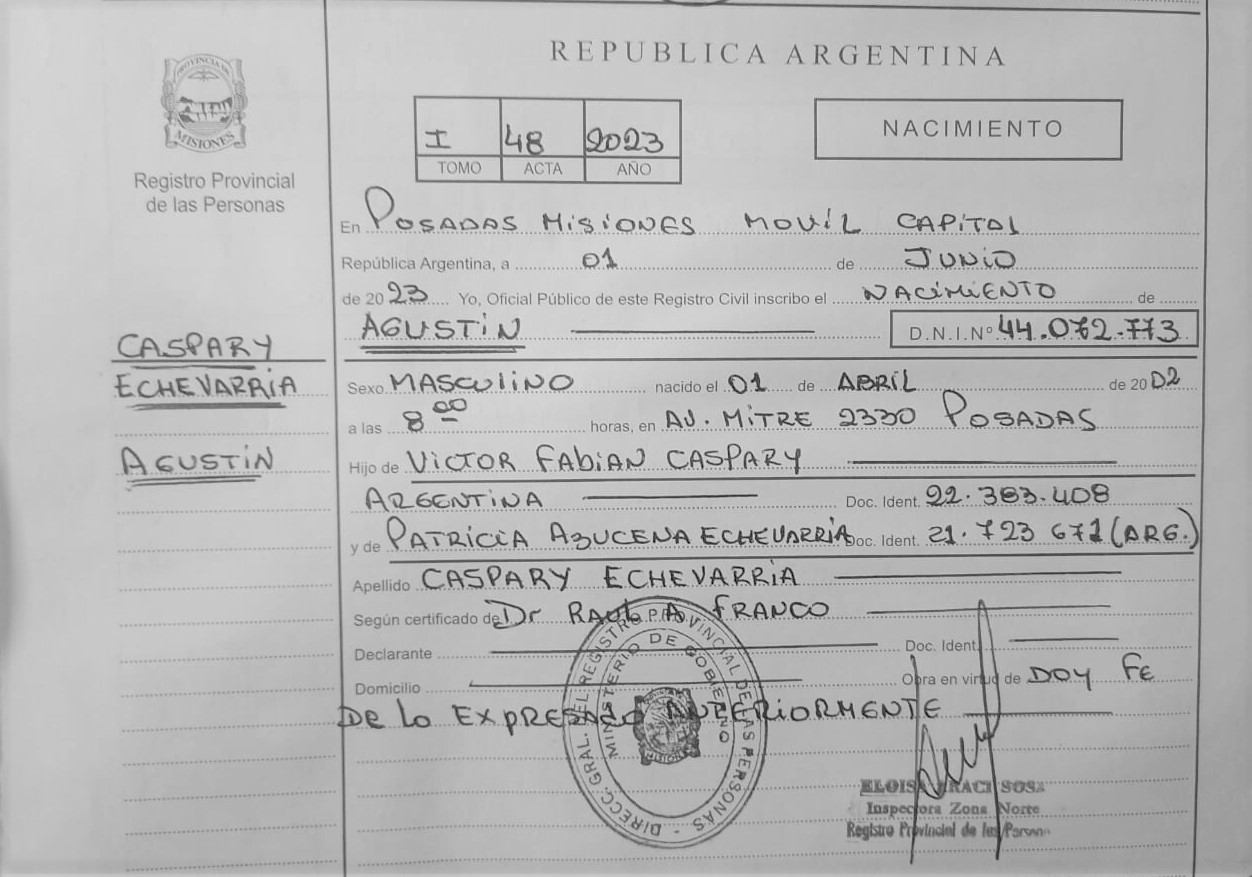 REPUBLICA ARGENTINA
PROVINCIA DE
MISIONES
Registro Provincial
de las Personas
I 48 2023
TOMO ACTA AÑO
NACIMIENTO
En POSADAS MISIONES MOVIL CAPITAL
República Argentina, a 01 de JUNIO
de 2023 Yo, Oficial Público de este Registro Civil inscribo el NACIMIENTO de
AGUSTIN D.N.I.Nº 44.072.773
CASPARY
ECHEVARRIA
AGUSTIN
Sexo MASCULINO nacido el 01 de ABRIL de 2002
a las 8 00 horas, en AV. MITRE 2330 POSADAS
Hijo de VICTOR FABIAN CASPARY
ARGENTINA Doc. Ident. 22.383.408
y de PATRICIA AZUCENA ECHEVARRIA Doc. Ident. 21.723 671 (ARG.)
Apellido CASPARY ECHEVARRIA
Según certificado de Dr RAUL A FRANCO
Declarante Doc. Ident.
Domicilio Obra en virtud de DOY FE
DE LO EXPRESADO ANTERIORMENTE
DIRECC. GRAL. DEL REGISTRO PROVINCIAL DE LAS PERSONAS -
MINISTERIO DE GOBIERNO
MISIONES
SOSA
Inspectora Zona Norte
Registro Provincial de las Personas